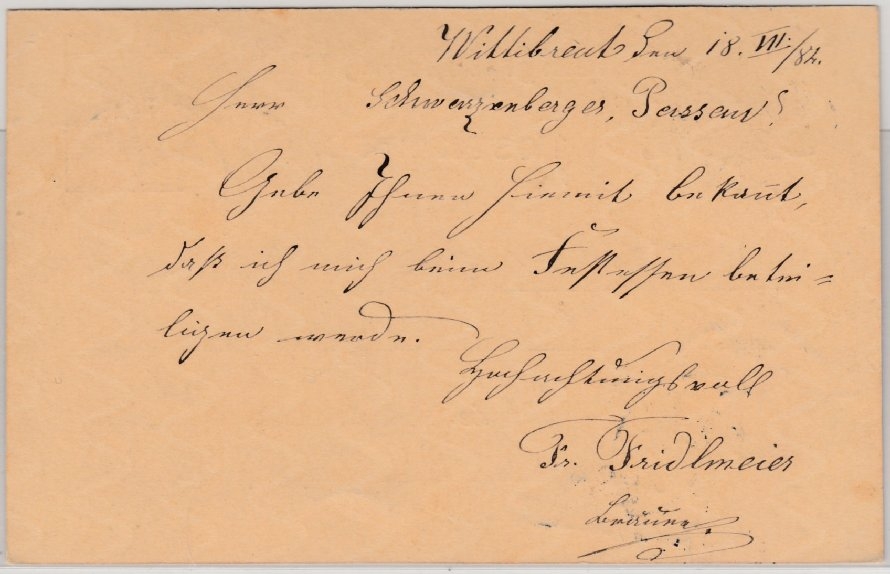 Wittibreut den 18. VII./82.
Herr Schwarzenberger, Passau!
Gebe Ihnen hiemit bekannt,
daß ich mich beim Festessen betei=
ligen werde.
Hochachtungsvoll
Fr. Fridlmeier
Brauer